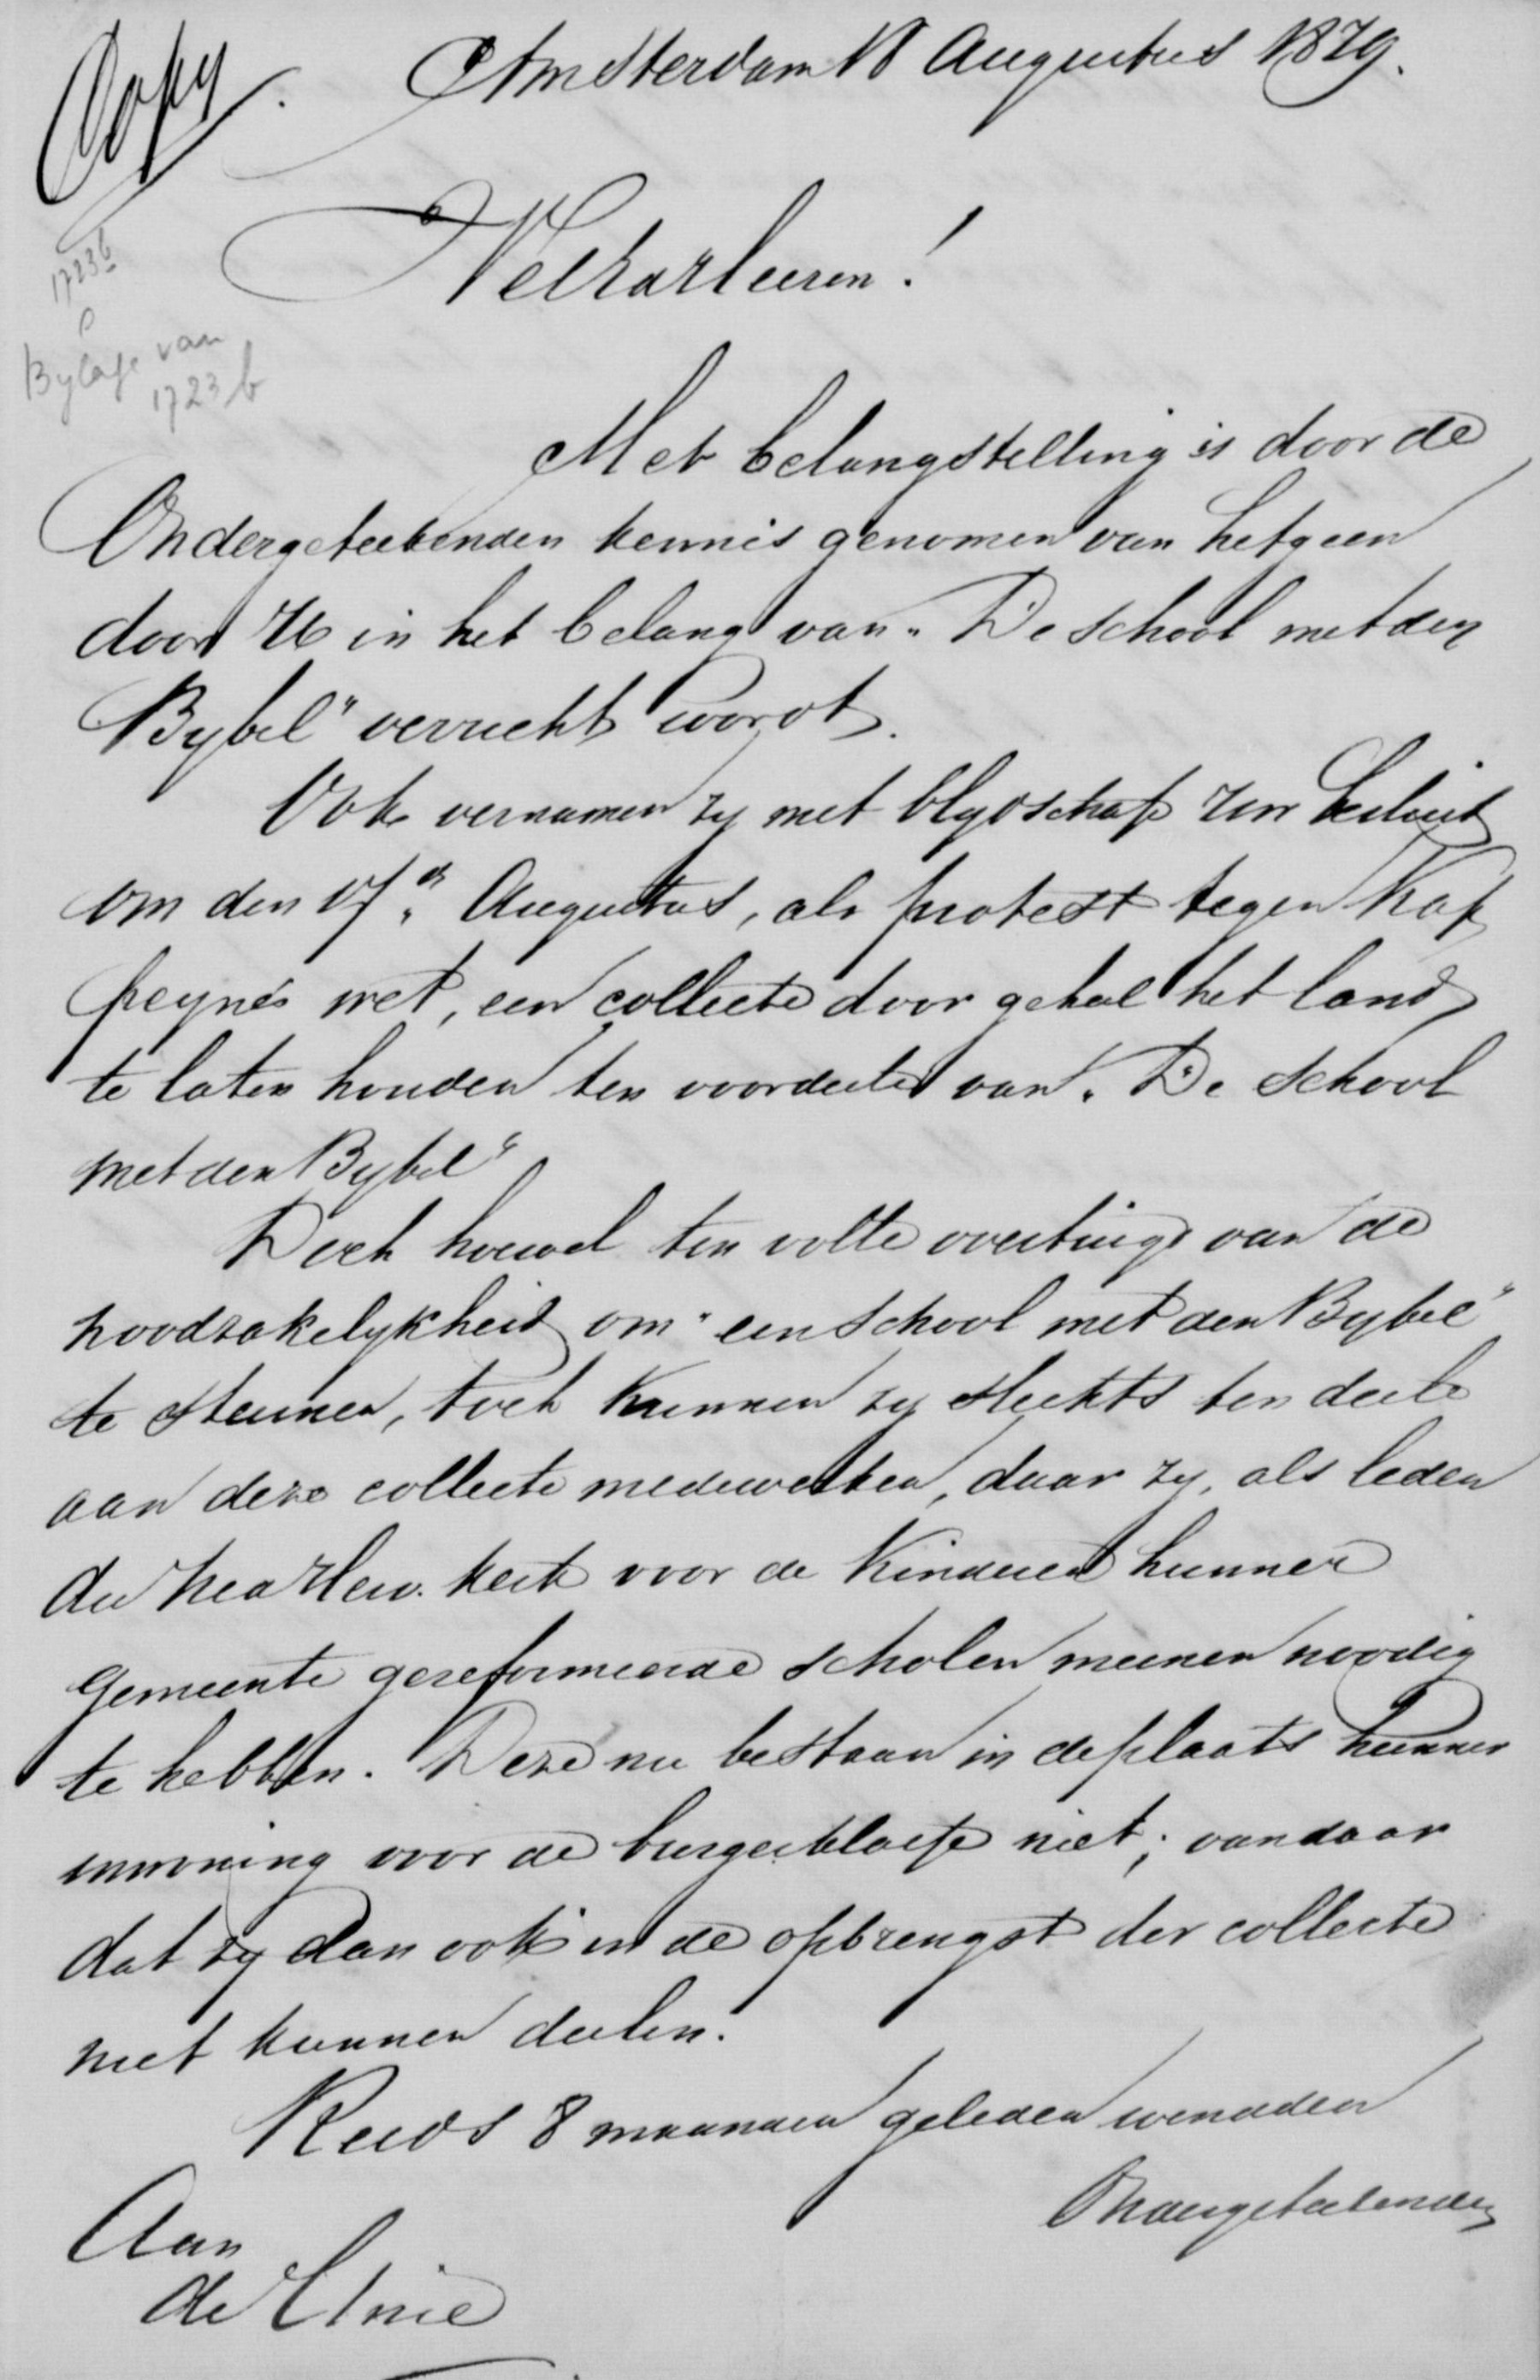 Copy.
Amsterdam 18 Augustus 1879.
1723b
Bylage van
1723 b
WelEdHeeren!
Met belangstelling is door de
Ondergeteekenden kennis genomen van hetgeen
door U in het belang van „De school met den
Bybel" verricht wordt.
Ook vernamen zy met blydschap Uw besluit
om den 17en Augustus, als protest tegen Kap
peyne's wet, een collecte door geheel het land
te laten houden ten voordeele van „De school
met den Bybel"
Doch hoewel ten volle overtuigd van de
noodzakelykheid om "een school met den Bybel"
te steunen, toch kunnen zy slechts ten deele
aan deze collecte medewerken, daar zy, als leden
der Ned Herv. Kerk voor de kinderen hunner
gemeente gereformeerde scholen meenen noodig
te hebben. Deze nu bestaan in de plaats hunner
inwoning voor de burgerklasse niet; vandaar
dat zy dan ook in de opbrengst der collecte
niet kunnen deelen.
Reeds 8 maanden geleden wendden
Ondergeteekenden
Aan
de Unie